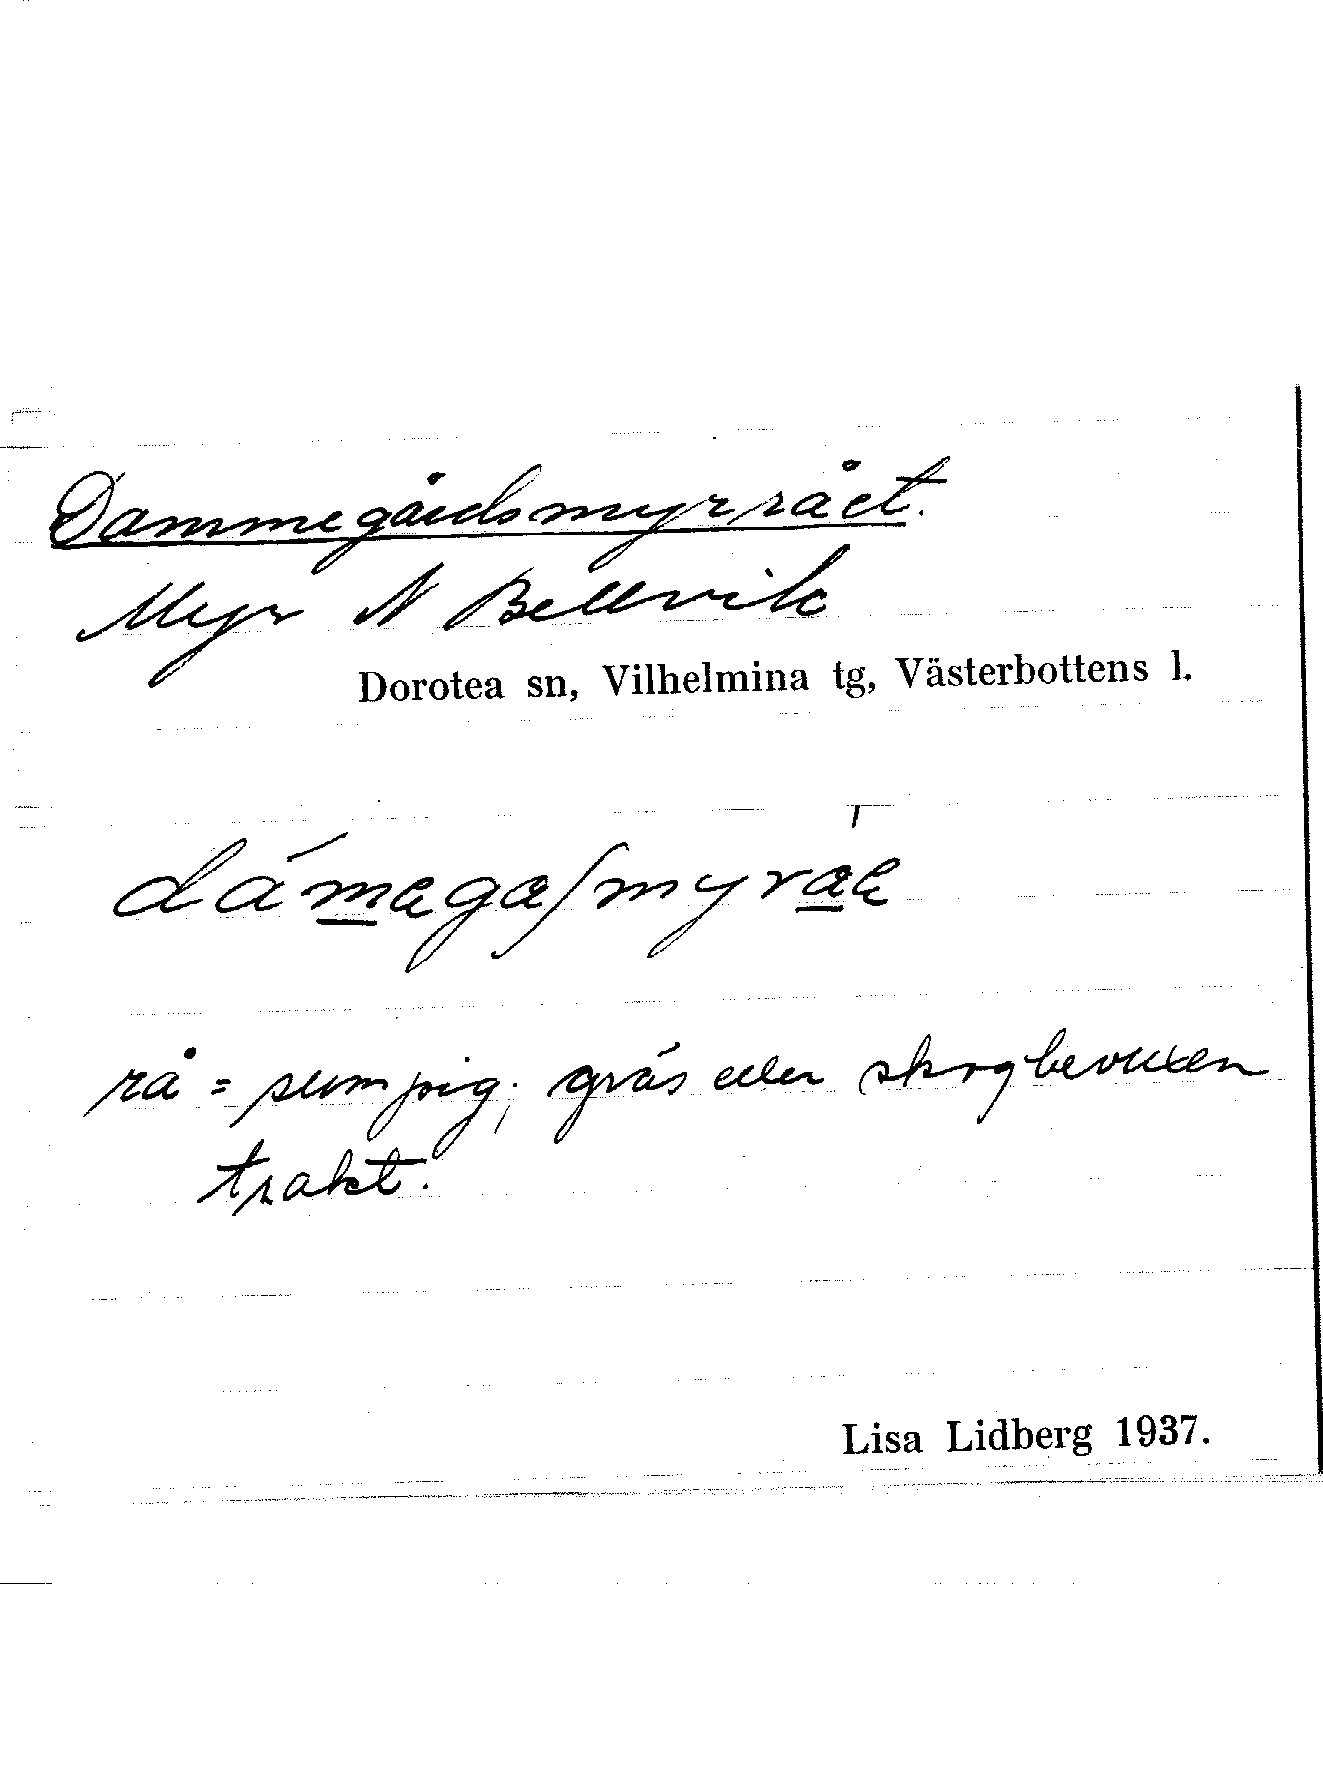 Dammegårdsmyrrået.
Myr N Bellvik
Dorotea sn, Vilhelmina tg, Västerbottens l.
rå = sumpig, gräs eller skogbevuxen
trakt.
Lisa Lidberg 1937.